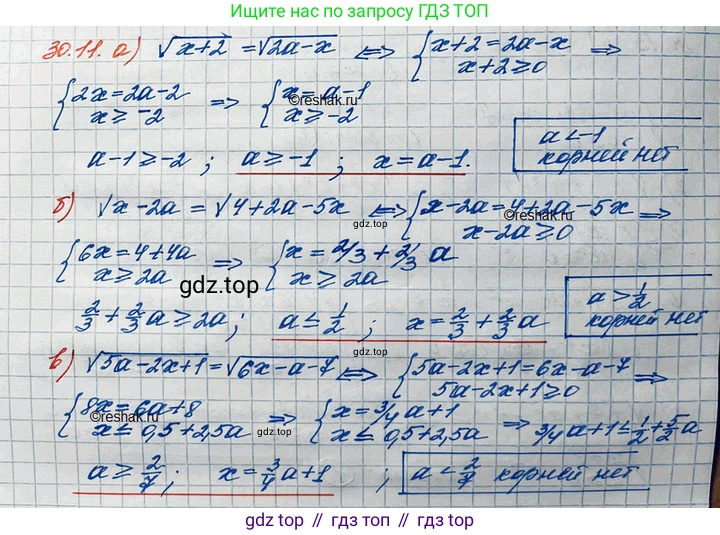 Ищите нас по запросу ГДЗ ТОП
30.11. а) √x+2 = √2a-x ⟺ { x+2=2a-x ⇒
x+2≥0
{ 2x=2a-2 ⇒ { x=a-1
x≥-2 x≥-2
©reshak.ru
a-1≥-2 ; a≥-1 ; x=a-1.
a<-1
корней нет
б) √x-2a = √4+2a-5x ⟺ { x-2a=4+2a-5x ⇒
x-2a≥0
©reshak.ru
gdz.top
{ 6x=4+4a ⇒ { x=2/3+2/3 a
x≥2a x≥2a
gdz.top
2/3+2/3a≥2a; a≤1/2 ; x=2/3+2/3a
a>1/2
корней нет
в) √5a-2x+1=√6x-a-7 ⟺ { 5a-2x+1=6x-a-7 ⇒
5a-2x+1≥0
{ 8x=6a+8 ⇒ { x=3/4a+1 ⇒ 3/4a+1≤1/2+5/2a
x≤0,5+2,5a x≤0,5+2,5a
©reshak.ru
gdz.top
a≥2/7; x=3/4a+1 ; a<2/7 корней нет
gdz top // гдз топ // gdz.top